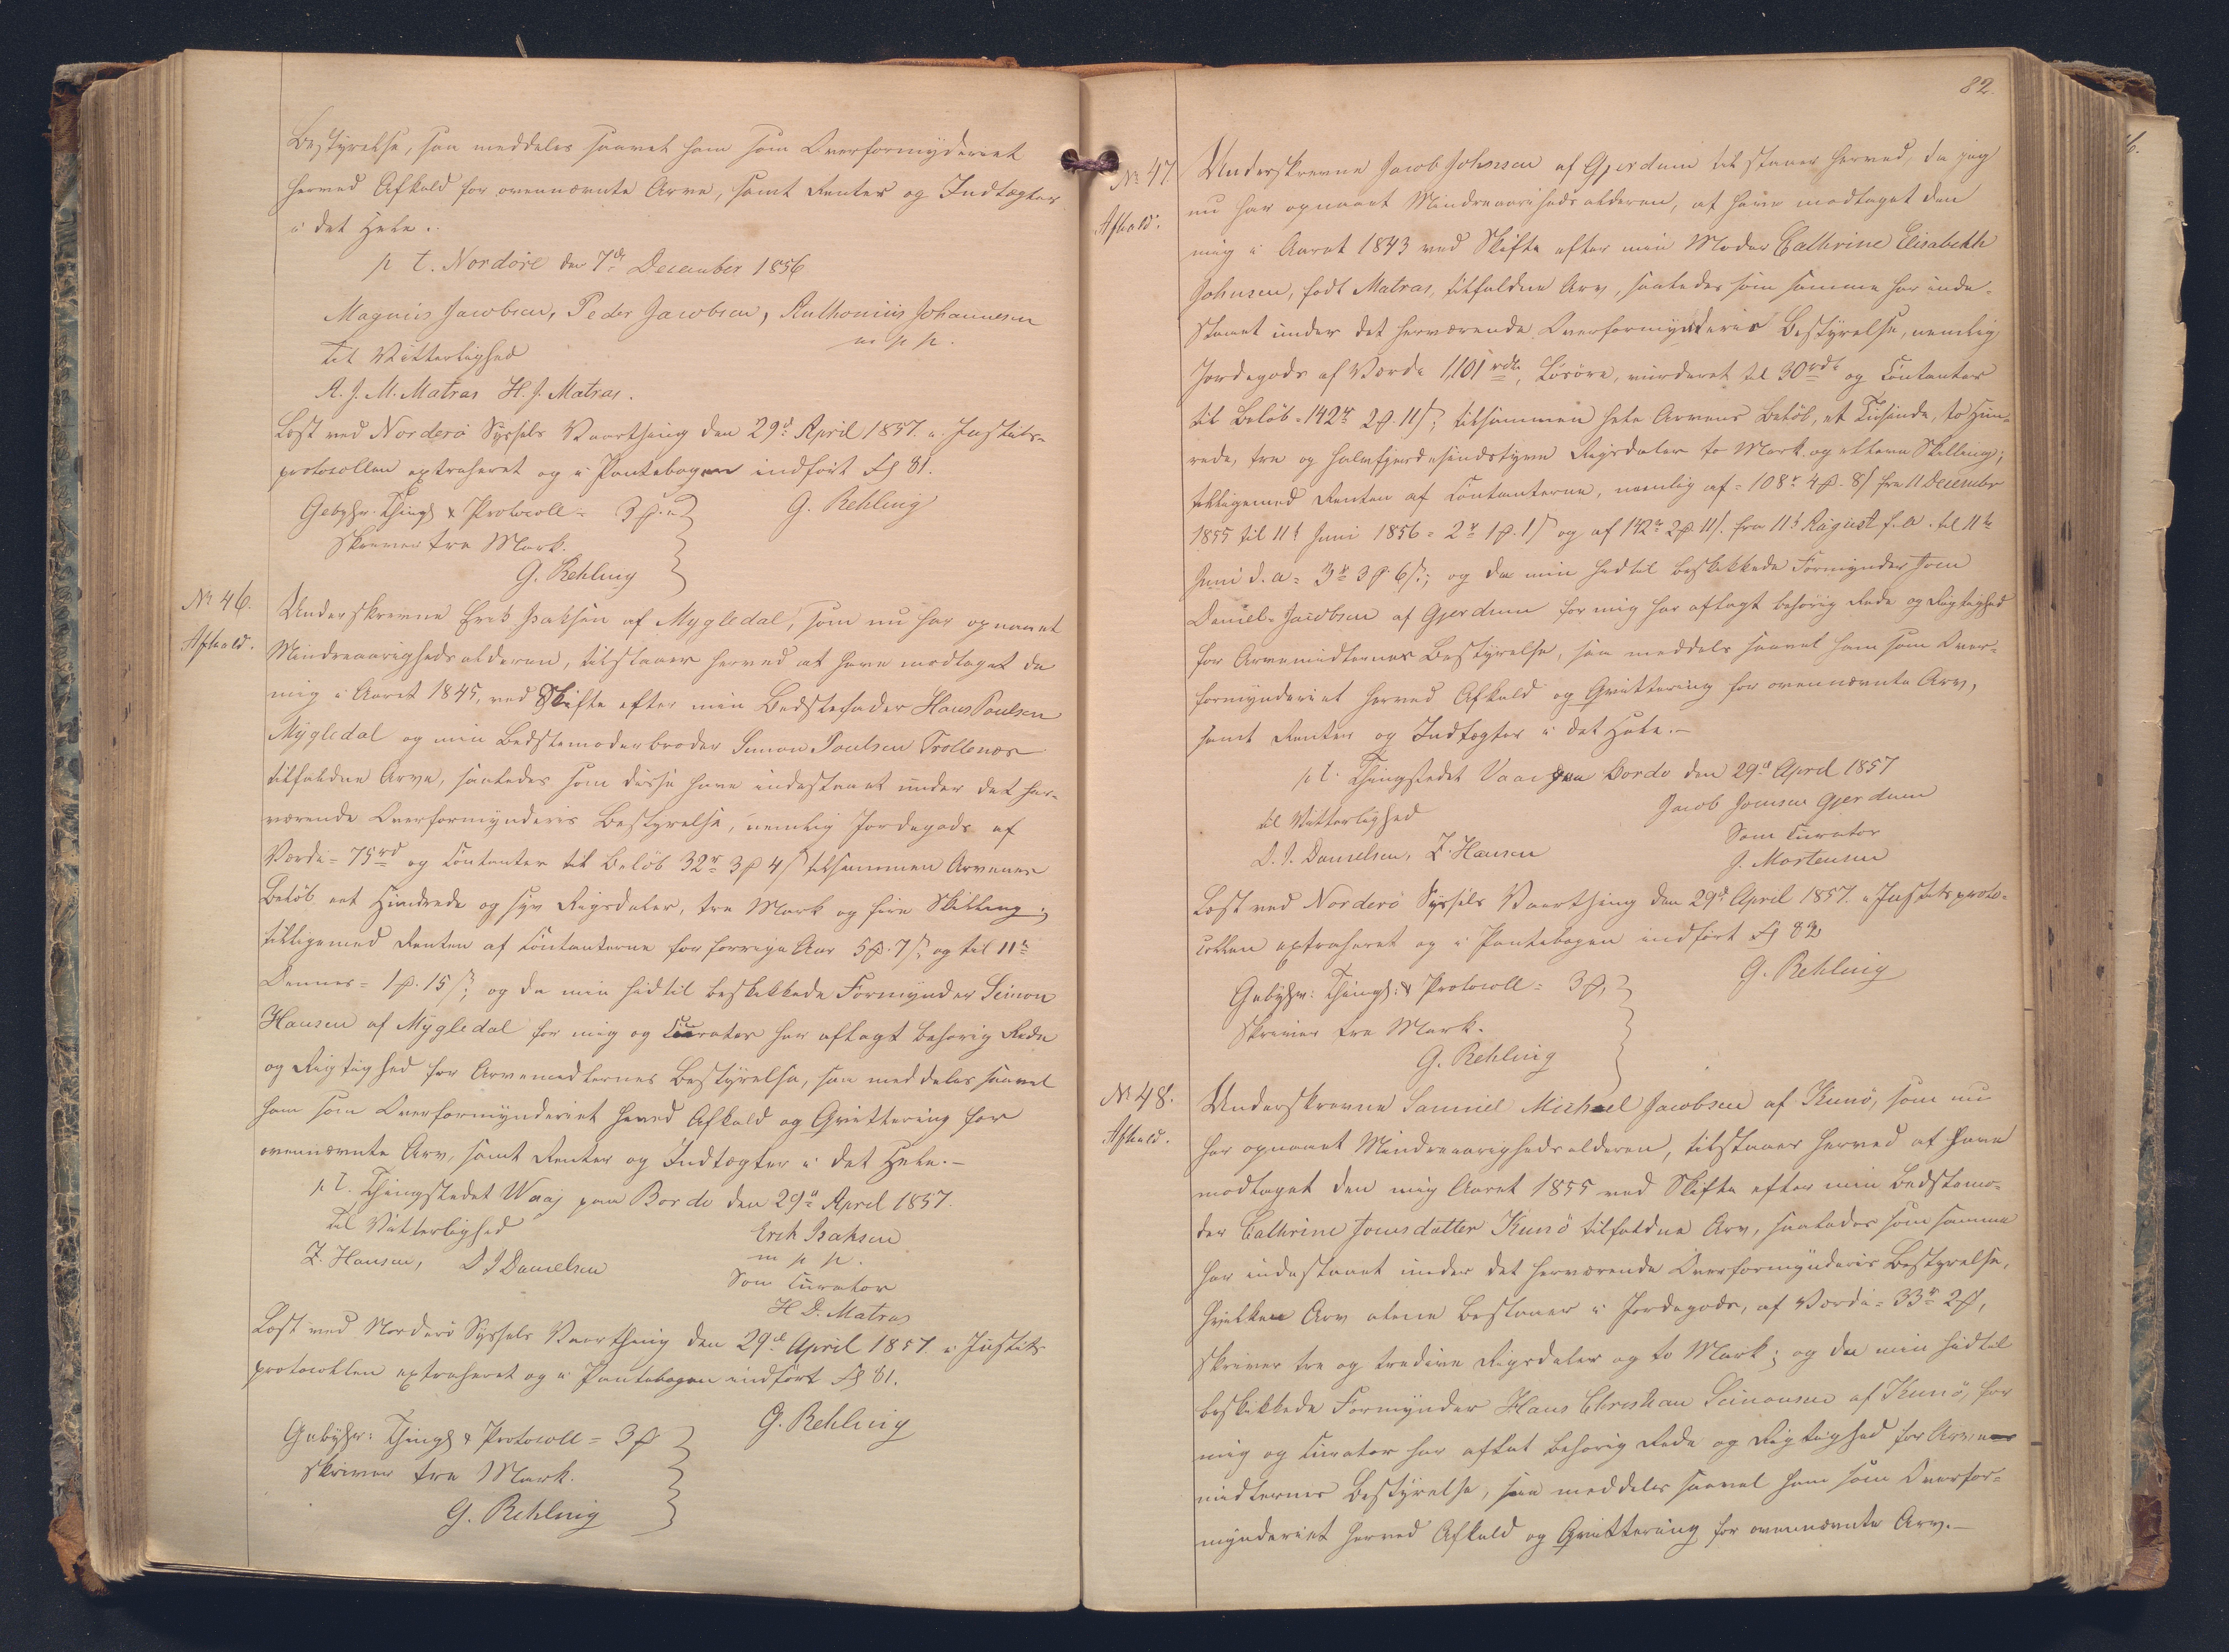 Bestyrelse, saa meddeles saavel ham som Overformynderiet
herved Afkald for ovennævnte Arve, samt Renter og Indtægter
i det Hele.
p t. Nordöre den 7de December 1856
Magnus Jacobsen, Peder Jacobsen, Anthonius Johannesen
m p p.
Til Vitterlighed
A. J. M. Matras H. J. Matras.
Læst ved Norderö Syssels Vaarthing den 29d April 1857. i Justits-
protocollen extraheret og i Pantebogen indfört Fol 81.
Gebyhr. Thingl & Protocoll = 3 ꝑ. G. Rehling
skriver tre Mark.
G. Rehling
No 46.
Afkald.
Underskrevne Erik Isaksen af Mygledal, som nu har opnaaet
Mindreaarigheds alderen, tilstaaer herved at have modtaget de
mig i Aaret 1845, ved Skifte efter min Bedstefader Hans Poulsen
Mygledal og min Bedstemoderbroder Simon Poulsen Trollenæs
tilfaldne Arve, saaledes som disse have indestaaet under det her-
værende Overformynderies Bestyrelse, nemlig Jordegods af
Værdi = 75rd og Contanter til Belöb 32r 3ꝑ 4ß tilsammen Arvenes
Belöb, eet Hundrede og syv Rigsdaler, tre Mark og fire Skilling;
tilligemed Renten af Contanterne for forrige Aar 5ꝑ. 7ß, og til 11te
Dennes = 1ꝑ. 15ß; og da min hidtil beskikkede Formynder Simon
Hansen af Mygledal for mig og Curator har aflagt behörig Rede
og Rigtighed for Arvemidlernes Bestyrelse, saa meddeles saavel
ham som Overformynderiet herved Afkald og Qvittering for
ovennævnte Arv, samt Renter og Indtægter i det Hele.-
p t. Thingstedet Waaj paa Bordö den 29d April 1857.
Til Vitterlighed Erik Isaksen
Z. Hansen, D J Danielsen m p p.
Som Curator
H D. Matras
Læst ved Norderö Syssels Vaarthing den 29d April 1857. i Justits
protocollen extraheret og i Pantebogen indfört Fol 81.
Gebyhr: Thingl & Protocoll = 3ꝑ G. Rehling
skriver tre Mark.
G. Rehling
82.
No 47
Afkald:
Underskrevne Jacob Johnsen af Gjerdum tilstaaer herved, da jeg
nu har opnaaet Mindreaarigheds alderen, at have modtaget den
mig i Aaret 1843 ved Skifte efter min Moder Cathrine Elisabeth
Johnsen, födt Matras, tilfaldne Arv, saaledes som samme har inde-
staaet under det herværende Overformynderies Bestyrelse, nemlig
Jordegods af Værdi 1,101 rdl, Lösöre, vurderet til 30rdl og Contanter
til Belöb = 142r 2ꝑ. 11ß; tilsammen hele Arvens Belöb, et Tusinde, to Hun-
rede, tre og halvfjerdesindstyve Rigsdaler to Mark og elleve Skilling;
tilligemed Renten af Contanterne, nemlig af = 108r 4ꝑ. 8ß fra 11 December
1855 til 11t Juni 1856 = 2r 1ꝑ. 1ß og af 142r 2ꝑ 11ß. fra 11t August f. A. til 11te
Juni d. A = 3r 3ꝑ. 6ß; og da min hidtil beskikkede Formynder Joen
Daniel Jacobsen af Gjerdum for mig har aflagt behörig Rede og Rigtighed
for Arvemidlernes Bestyrelse, saa meddeles saavel ham som Over-
formynderiet herved Afkald og Qvittering for ovennævnte Arv,
samt Renter og Indtægter i det Hele.-
p t. Thingstedet Vaaj paa Bordö den 29d April 1857
til Vitterlighed Jacob Joensen Gjerdum
D. J. Danielsen, Z. Hansen Som Curator
J. Mortensen
Læst ved Norderö Syssels Vaarthing den 29d April 1857. i Justitsproto-
collen extraheret og i Pantebogen indfört Fol 82
Gebyhr: Thingl: & Protocoll = 3ꝑ, G. Rehling
skriver tre Mark.
G. Rehling
No 48.
Afkald.
Underskrevne Samuel Michael Jacobsen af Kunö, som nu
har opnaaet Mindreaarigheds alderen, tilstaaer herved at have
modtaget den mig Aaret 1855 ved Skifte efter min Bedstemo-
der Cathrine Joensdatter Kunö tilfaldne Arv, saaledes som samme
har indestaaet under det herværende Overformynderies Bestyrelse,
hvilken Arv alene bestaaer i Jordegods, af Værdi = 33r 2ꝑ,
skriver tre og tredive Rigsdaler og to Mark; og da min hidtil
beskikkede Formynder Hans Christian Simonsen af Kunö, for
mig og Curator har aflat behörig Rede og Rigtighed for Arve-
midlernes Bestyrelse, saa meddeles saavel ham som Overfor-
mynderiet herved Afkald og Qvittering for ovennævnte Arv.-